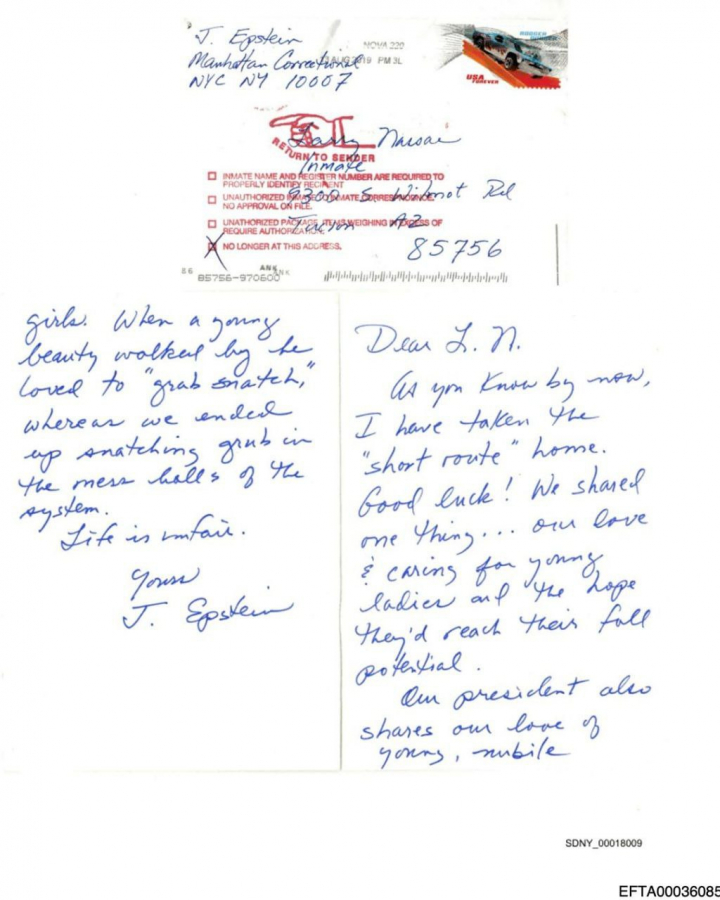 J. Epstein
Manhattan Correctional
NYC NY 10007
NOVA 220
AUG 2019 PM 3L
USA
FOREVER
Larry Nassar
RETURN TO SENDER
Inmate
INMATE NAME AND REGISTER NUMBER ARE REQUIRED TO
PROPERLY IDENTIFY RECIPIENT
9300 S. Wilmot Rd
UNAUTHORIZED INMATE CORRESPONDENCE.
NO APPROVAL ON FILE.
Tucson AZ
UNAUTHORIZED PACKAGE ITEMS WEIGHING IN EXCESS OF
REQUIRE AUTHORIZATION.
85756
NO LONGER AT THIS ADDRESS.
ANK
85756-970600
Dear L. N.
As you know by now,
I have taken the
"short route" home.
Good luck! We shared
one thing... our love
& caring for young
ladies and the hope
they'd reach their full
potential.
Our president also
shares our love of
young, nubile
girls. When a young
beauty walked by he
loved to "grab snatch,"
whereas we ended
up snatching grub in
the mess halls of the
system.
Life is unfair.
Yours
J. Epstein
SDNY_00018009
EFTA00036085